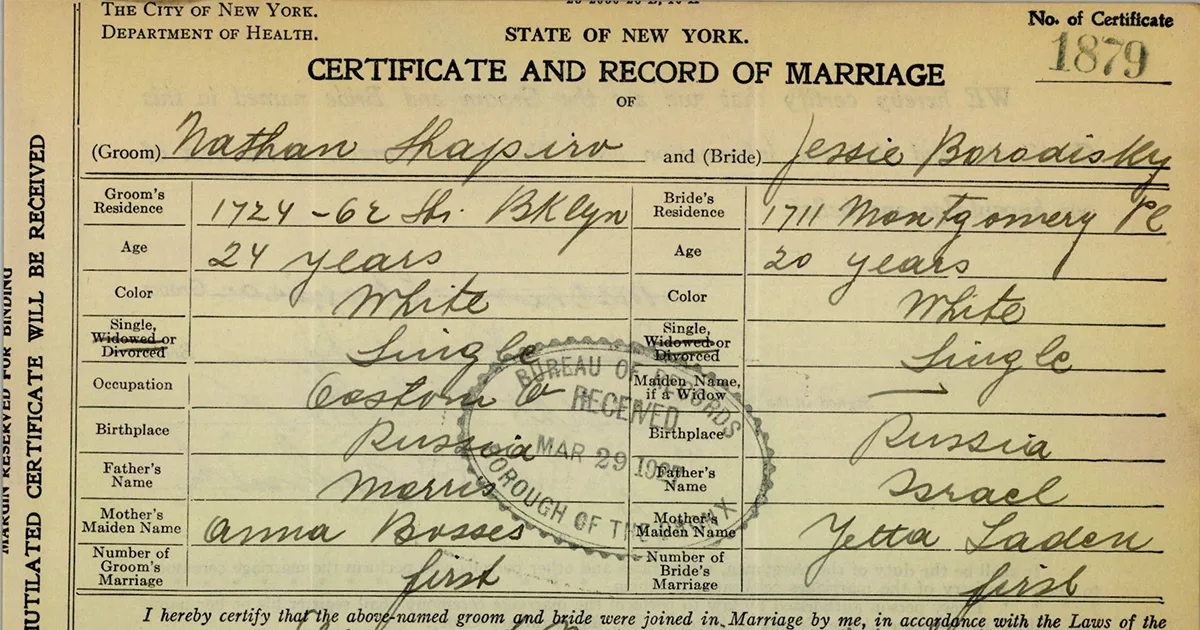 THE CITY OF NEW YORK.
DEPARTMENT OF HEALTH.
STATE OF NEW YORK.
No. of Certificate
1879
CERTIFICATE AND RECORD OF MARRIAGE
OF
(Groom) Nathan Shapiro and (Bride) Jessie Borodisky
Groom's Residence 1724 - 62 Str. BKlyn Bride's Residence 1711 Montgomery Pl
Age 24 years Age 20 years
Color White Color White
Single, Widowed or Divorced Single Single, Widowed or Divorced Single
Occupation Maiden Name, if a Widow
Birthplace Russia Birthplace Russia
Father's Name Morris Father's Name Israel
Mother's Maiden Name Anna Bosses Mother's Maiden Name Yetta Laden
Number of Groom's Marriage first Number of Bride's Marriage first
I hereby certify that the above-named groom and bride were joined in Marriage by me, in accordance with the Laws of the
BUREAU OF RECORDS
RECEIVED
MAR 29
BOROUGH OF THE BRONX
MARGIN RESERVED FOR BINDING
MUTILATED CERTIFICATE WILL BE RECEIVED